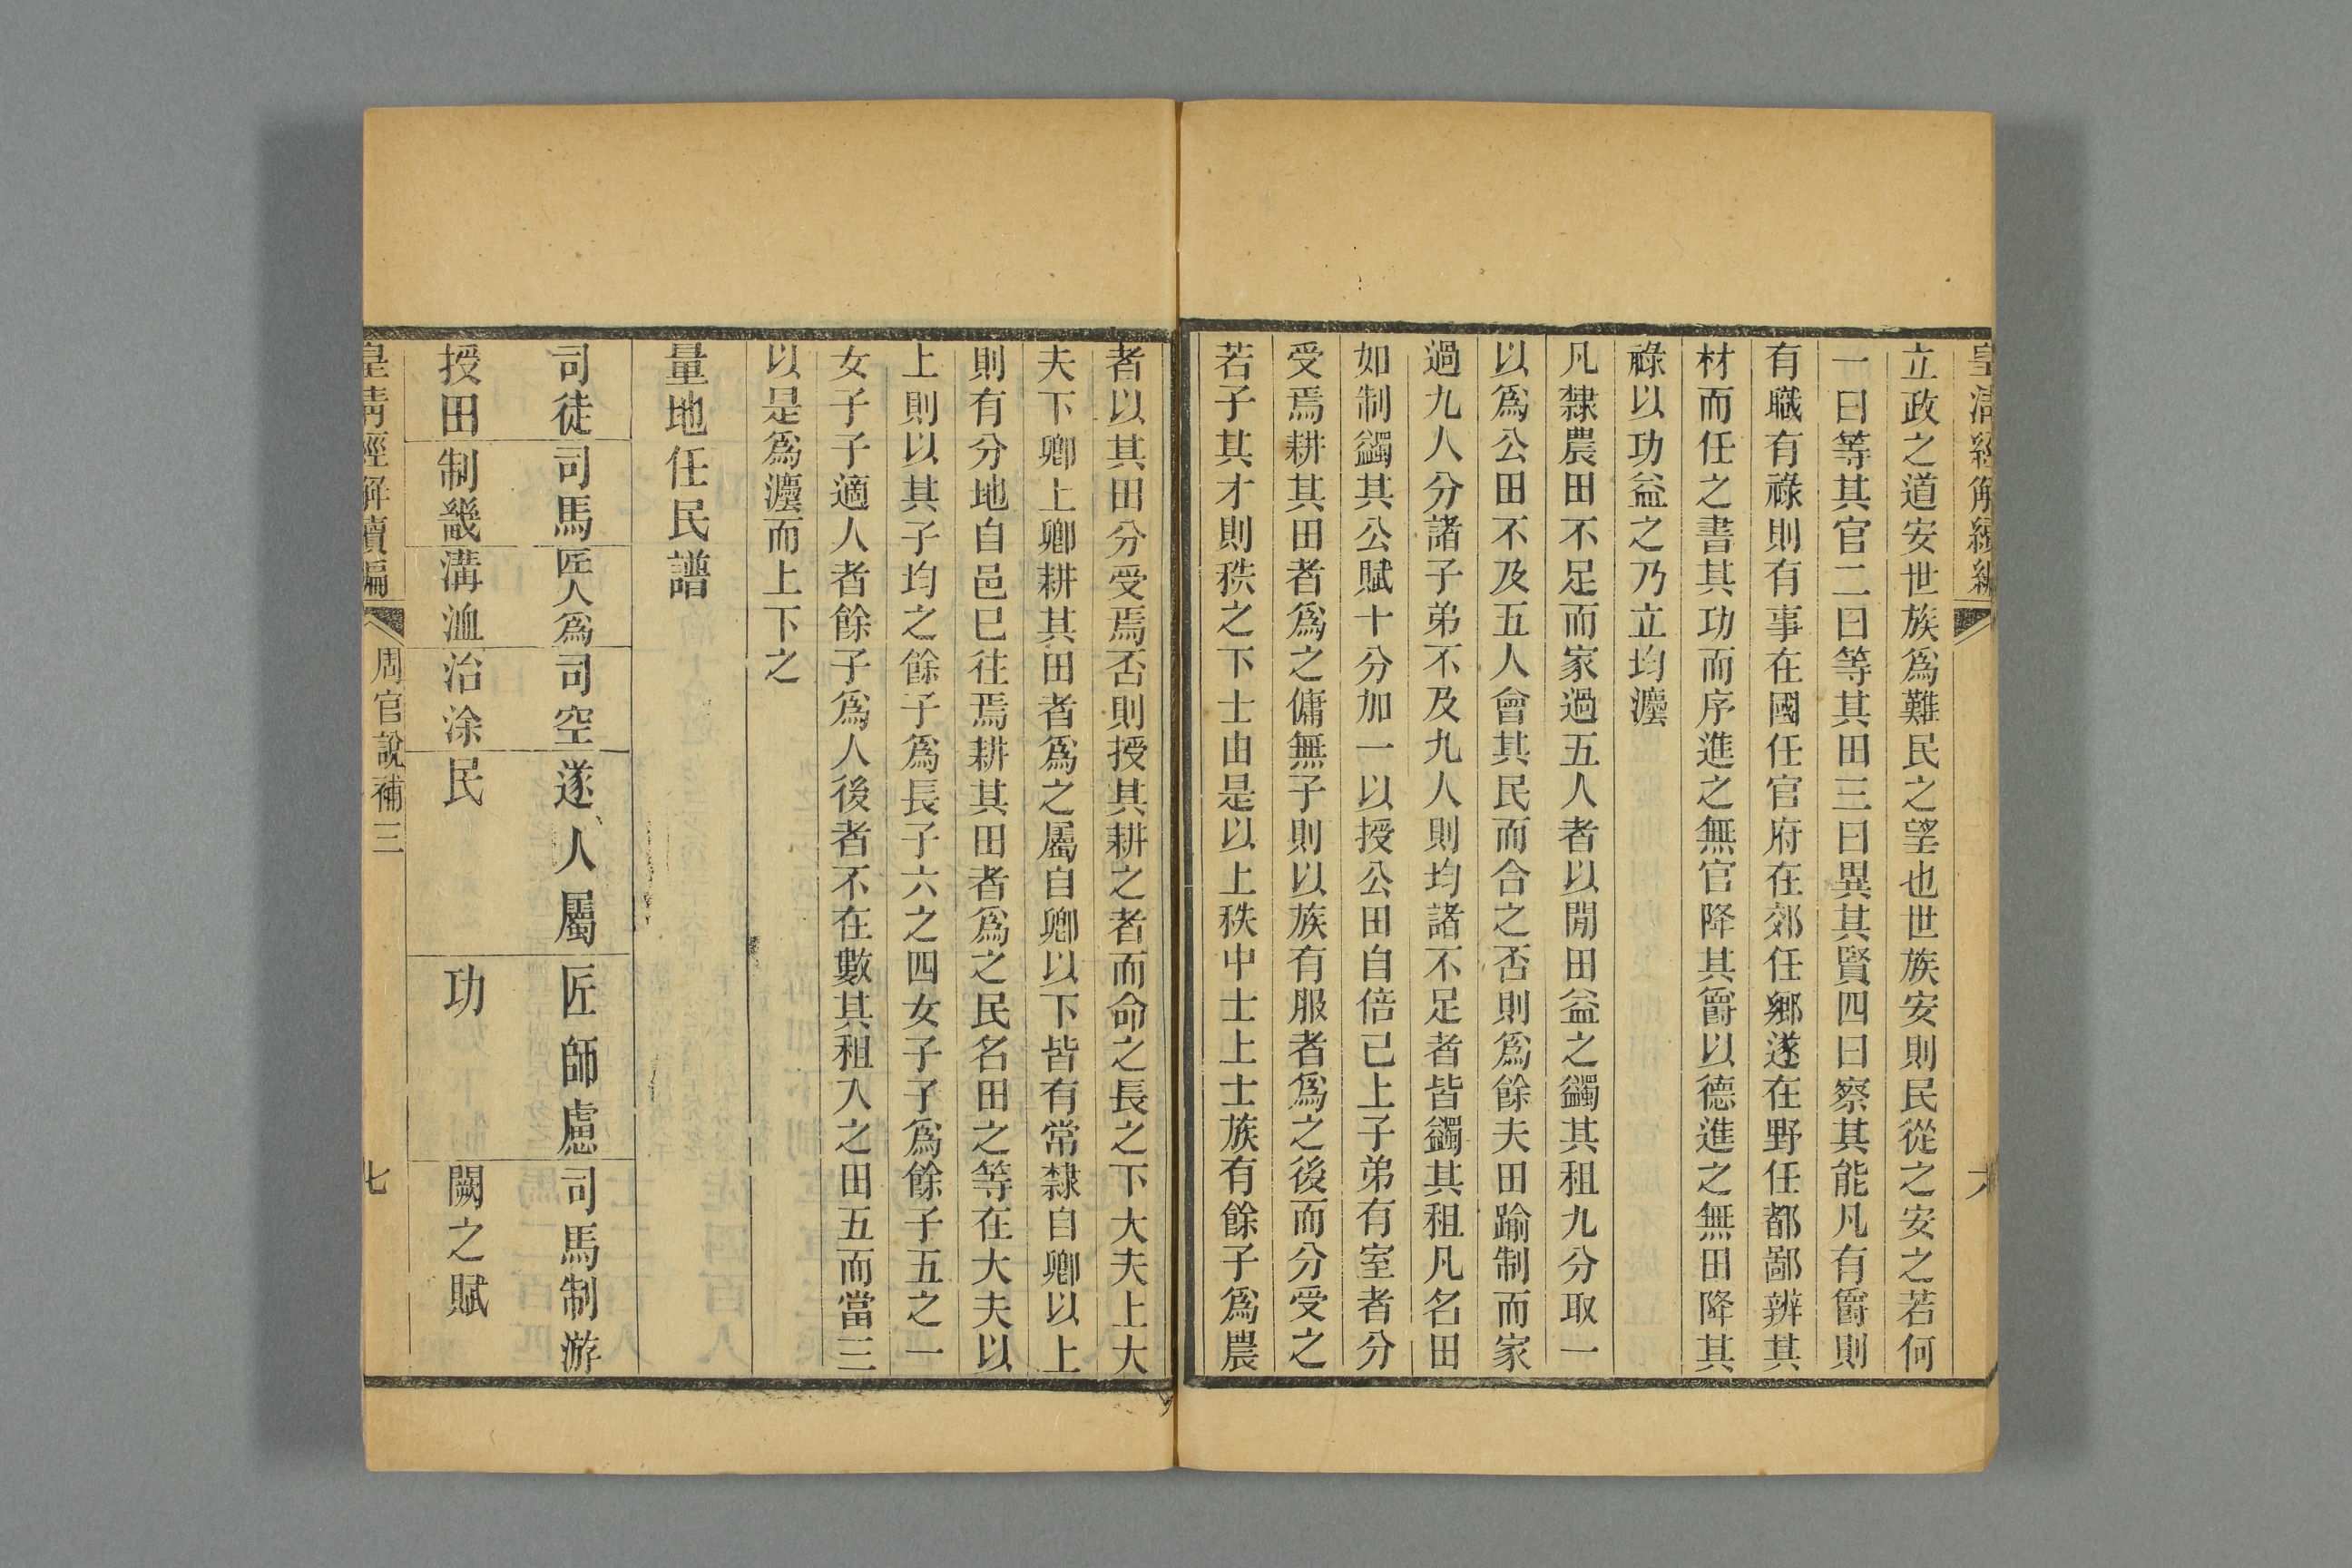 皇清經解續編
六
立政之道安世族爲難民之望也世族安則民從之安之若何
一曰等其官二曰等其田三曰異其賢四曰察其能凡有爵則
有職有祿則有事在國任官府在郊任鄉遂在野任都鄙辨其
材而任之書其功而序進之無官降其爵以德進之無田降其
祿以功益之乃立均灋
凡隸農田不足而家過五人者以閒田益之蠲其租九分取一
以爲公田不及五人會其民而合之否則爲餘夫田踰制而家
過九人分諸子弟不及九人則均諸不足者皆蠲其租凡名田
如制蠲其公賦十分加一以授公田自倍已上子弟有室者分
受焉耕其田者爲之傭無子則以族有服者爲之後而分受之
若子其才則秩之下士由是以上秩中士上士族有餘子爲農
者以其田分受焉否則授其耕之者而命之長之下大夫上大
夫下卿上卿耕其田者爲之屬自卿以下皆有常隸自卿以上
則有分地自邑已往焉耕其田者爲之民名田之等在大夫以
上則以其子均之餘子爲長子六之四女子子爲餘子五之一
女子子適人者餘子爲人後者不在數其租入之田五而當三
以是爲灋而上下之
量地任民譜
司徒 司馬 匠人爲 司空 遂人屬 匠師慮 司馬制游
授田 制畿 溝洫 治涂 民 功 闕之賦
皇清經解續編
周官說補三
七